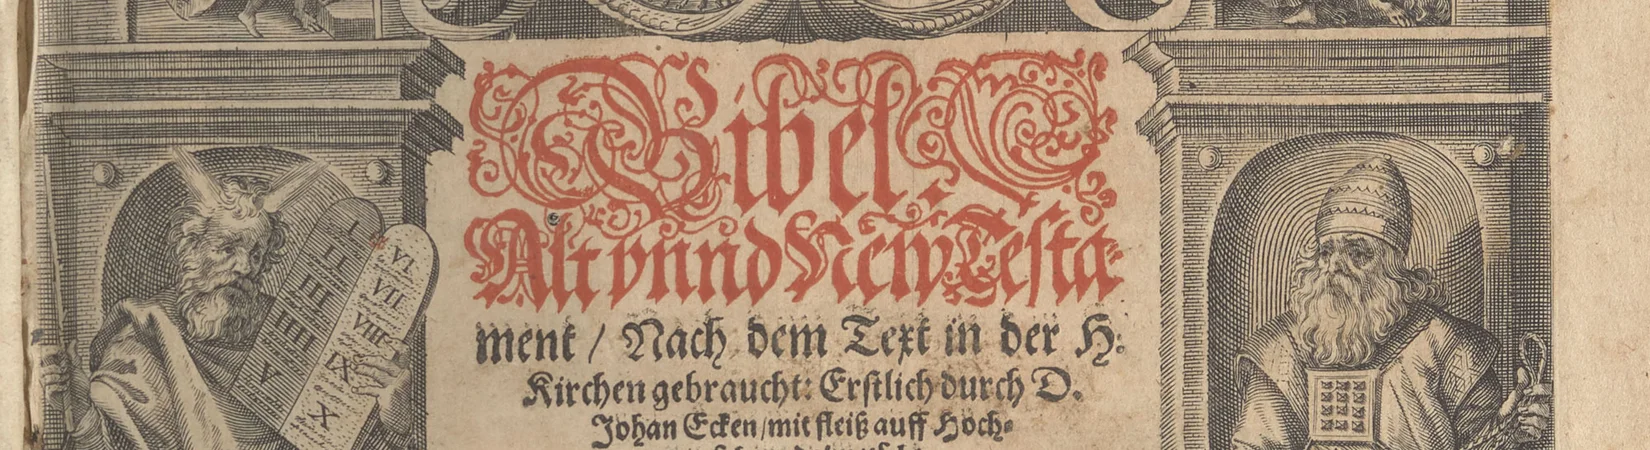 Bibel.
Alt vnnd New Testa-
ment / Nach dem Text in der H.
Kirchen gebraucht: Erstlich durch D.
Johan Ecken / mit fleiß auff Hoch-
I
II
III
IIII
V
VI
VII
VIII
IX
X